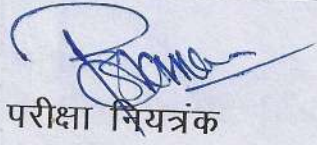 परीक्षा नियत्रंक